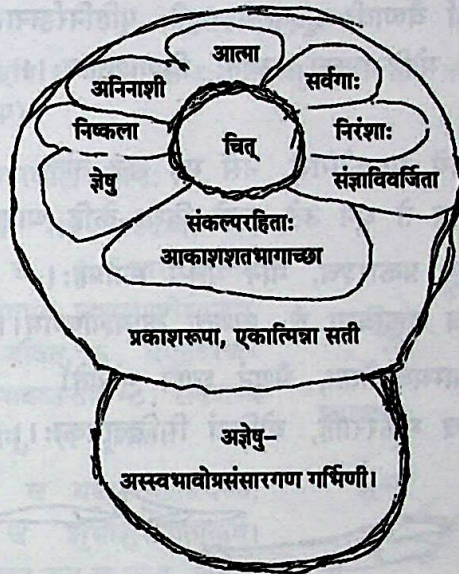 आत्मा
अनिनाशी
सर्वगाः
निष्कला
चित्
निरंशाः
ज्ञेषु
संज्ञाविवर्जिता
संकल्परहिताः
आकाशशतभागाच्छा
प्रकाशरूपा, एकात्मिन्ना सती
अज्ञेषु–
अस्स्वभावोप्रसंसारगण गर्भिणी।